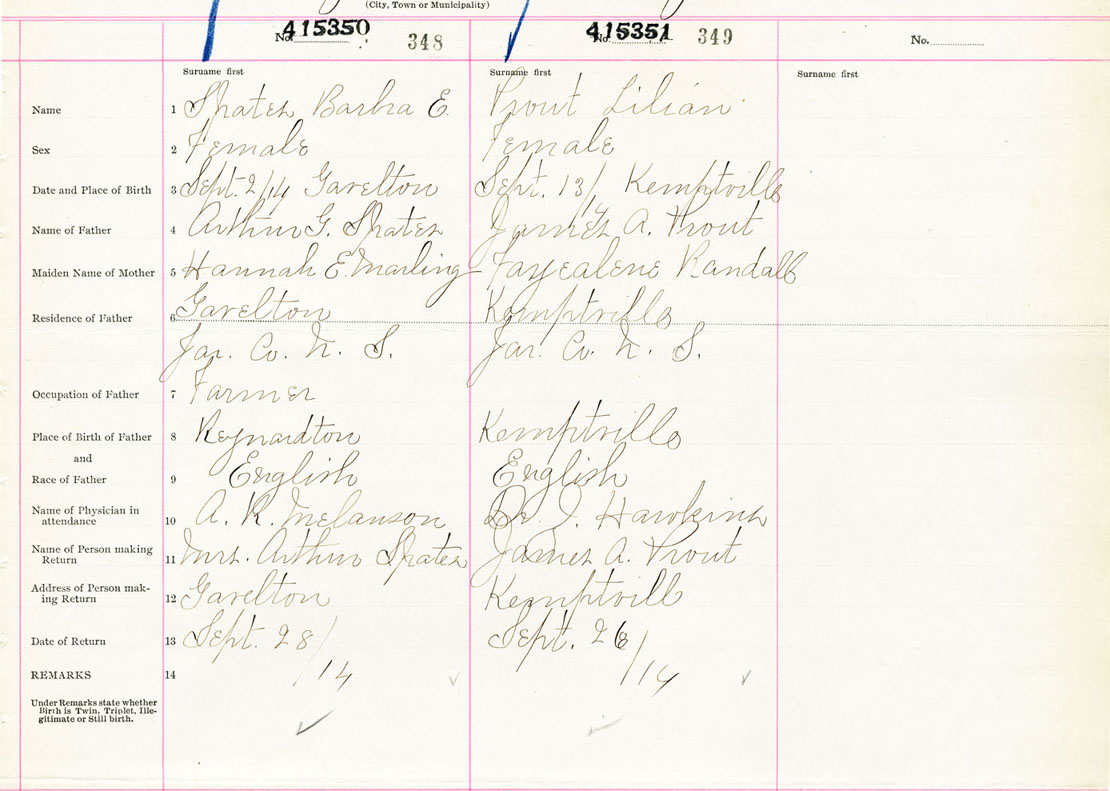 (City, Town or Municipality)
No. 415350 348
No. 415351 349
No.
Surname first
Surname first
Surname first
Name 1 Spates Barbra E. Prout Lilian
Sex 2 Female Female
Date and Place of Birth 3 Sept. 2/14 Gavelton Sept. 13/14 Kemptville
Name of Father 4 Arthur G. Spates James A. Prout
Maiden Name of Mother 5 Hannah E. Marling Randall
Residence of Father 6 Gavelton Kemptville
Yar. Co. N. S. Yar. Co. N. S.
Occupation of Father 7 Farmer
Place of Birth of Father 8 Reynardton Kemptville
and
Race of Father 9 English English
Name of Physician in
attendance 10 A. R. Melanson Dr. J. Hawkins
Name of Person making
Return 11 Mrs. Arthur Spates James A. Prout
Address of Person mak-
ing Return 12 Gavelton Kemptvill
Date of Return 13 Sept. 28/14 Sept. 26/14
REMARKS 14
Under Remarks state whether
Birth is Twin, Triplet, Ille-
gitimate or Still birth.